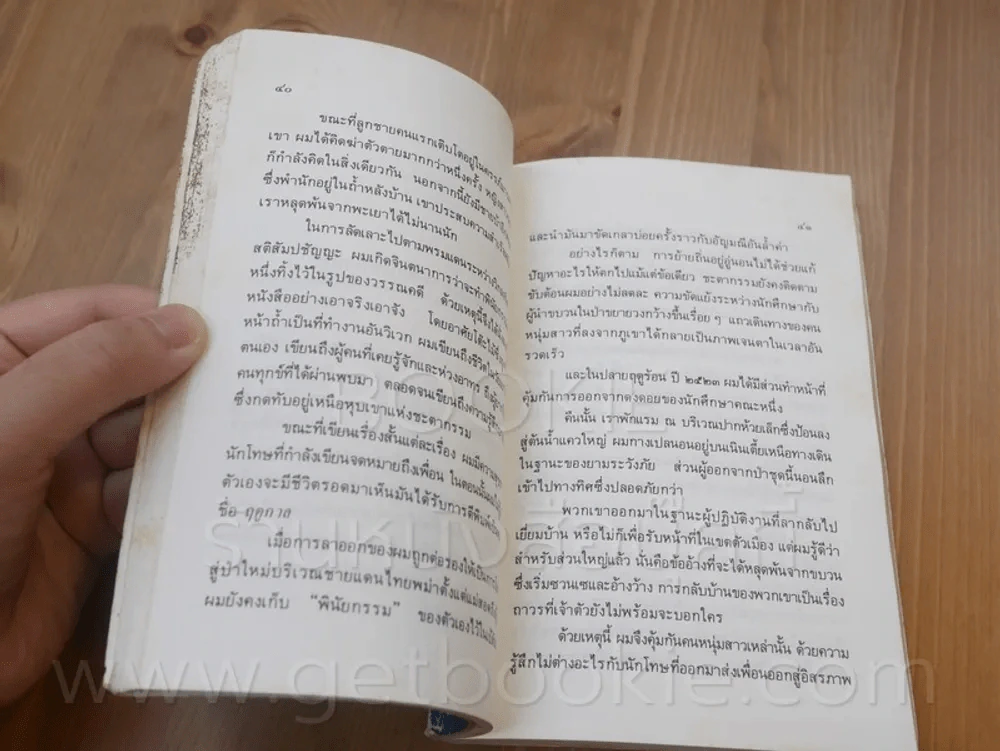 ๔๐
ขณะที่ลูกชายคนแรกเติบโตอยู่ในครรภ์
เขา ผมได้คิดฆ่าตัวตายมากกว่าหนึ่งครั้ง หญิง
ก็กำลังคิดในสิ่งเดียวกัน นอกจากนี้ยังมีชาย
ซึ่งพำนักอยู่ในถ้ำหลังบ้าน เขาประสบความสำเร็จ
เราหลุดพ้นจากพะเยาได้ไม่นานนัก
ในการลัดเลาะไปตามพรมแดนระหว่าง
สติสัมปชัญญะ ผมเกิดจินตนาการว่าจะทำพินัยกรรม
หนึ่งทิ้งไว้ในรูปของวรรณคดี ด้วยเหตุนี้จึงได้
หนังสืออย่างเอาจริงเอาจัง โดยอาศัยโต๊ะไม้
หน้าถ้ำเป็นที่ทำงานอันวิเวก ผมเขียนถึงชีวิต
ตนเอง เขียนถึงผู้คนที่เคยรู้จักและห่วงอาทร ถึง
คนทุกข์ที่ได้ผ่านพบมา ตลอดจนเขียนถึงความรู้สึก
ซึ่งกดทับอยู่เหนือหุบเขาแห่งชะตากรรม
ขณะที่เขียนเรื่องสั้นแต่ละเรื่อง ผมมีความ
นักโทษที่กำลังเขียนจดหมายถึงเพื่อน ในตอนนั้น
ตัวเองจะมีชีวิตรอดมาเห็นมันได้รับการตีพิมพ์
ชื่อ ฤดูกาล
เมื่อการลาออกของผมถูกต่อรองให้เป็นการ
สู่ป่าใหม่บริเวณชายแดนไทยพม่าตั้งแต่แม่สอด
ผมยังคงเก็บ “พินัยกรรม” ของตัวเองไว้ใน
๔๑
และนำมันมาขัดเกลาบ่อยครั้งราวกับอัญมณีอันล้ำค่า
อย่างไรก็ตาม การย้ายถิ่นอยู่อู่นอนไม่ได้ช่วยแก้
ปัญหาอะไรให้ตกไปแม้แต่ข้อเดียว ชะตากรรมยังคงติดตาม
ขับต้อนผมอย่างไม่ลดละ ความขัดแย้งระหว่างนักศึกษากับ
ผู้นำขบวนในป่าขยายวงกว้างขึ้นเรื่อย ๆ แถวเดินทางของคน
หนุ่มสาวที่ลงจากภูเขาได้กลายเป็นภาพเจนตาในเวลาอัน
รวดเร็ว
และในปลายฤดูร้อน ปี ๒๕๒๓ ผมได้มีส่วนทำหน้าที่
คุ้มกันการออกจากดงดอยของนักศึกษาคณะหนึ่ง
คืนนั้น เราพักแรม ณ บริเวณปากห้วยเล็กซึ่งป้อนลง
สู่ต้นน้ำแควใหญ่ ผมกางเปลนอนอยู่บนเนินเตี้ยเหนือทางเดิน
ในฐานะของยามระวังภัย ส่วนผู้ออกจากป่าชุดนี้นอนลึก
เข้าไปทางทิศซึ่งปลอดภัยกว่า
พวกเขาออกมาในฐานะผู้ปฏิบัติงานที่ลากลับไป
เยี่ยมบ้าน หรือไม่ก็เพื่อรับหน้าที่ในเขตตัวเมือง แต่ผมรู้ดีว่า
สำหรับส่วนใหญ่แล้ว นั่นคือข้ออ้างที่จะได้หลุดพ้นจากขบวน
ซึ่งเริ่มซวนเซและอ้างว้าง การกลับบ้านของพวกเขาเป็นเรื่อง
ถาวรที่เจ้าตัวยังไม่พร้อมจะบอกใคร
ด้วยเหตุนี้ ผมจึงคุ้มกันคนหนุ่มสาวเหล่านั้น ด้วยความ
รู้สึกไม่ต่างอะไรกับนักโทษที่ออกมาส่งเพื่อนออกสู่อิสรภาพ
www.getbookie.com